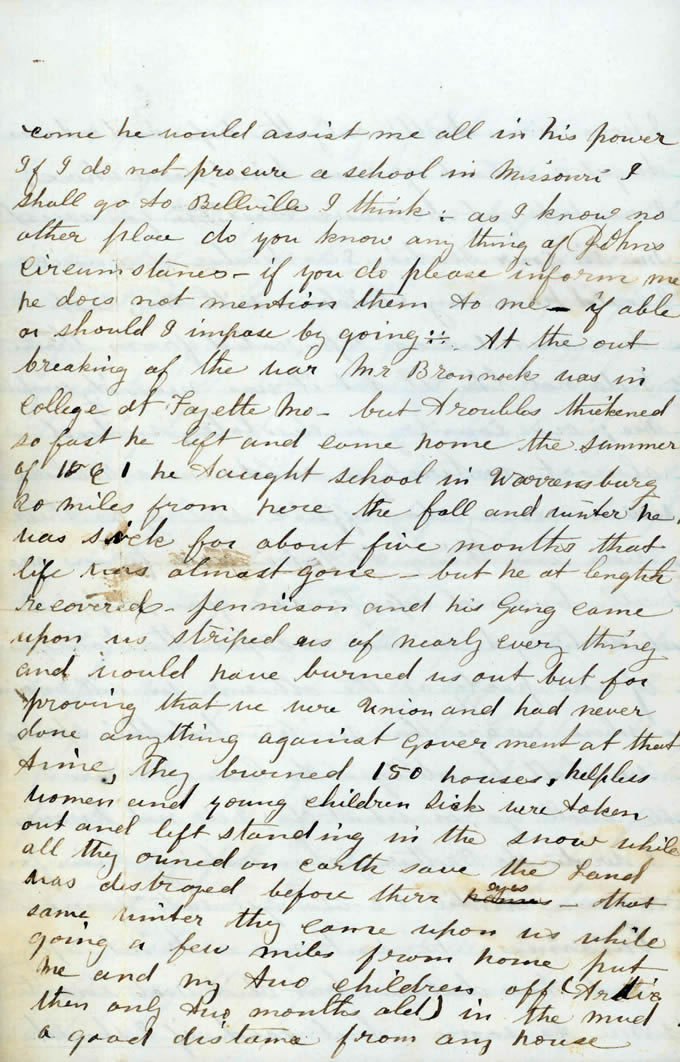 come he would assist me all in his power
If I do not procure a school in Missouri I
shall go to Bellville I think :- as I know no
other place do you know any thing of Johns
circumstances - if you do please inform me
he does not mention them to me - if able
or should I impose by going :: At the out
breaking of the war Mr Bronnock was in
College at Fayette Mo - but troubles thickened
so fast he left and came home the summer
of 1861 he taught school in Warrensburg
20 miles from here the fall and winter he
was sick for about five months that
life was almost gone - but he at length
recovered - Jennison and his Gang came
upon us striped us of nearly every thing
and would have burned us out but for
proving that we were Union and had never
done anything against Goverment at that
time, they burned 150 houses, helpless
women and young children sick were taken
out and left standing in the snow while
all they owned on earth save the Land
was destroyed before there eyes - that
same winter they came upon us while
going a few miles from home put
me and my two children off (
then only two months old) in the mud
a good distance from any house